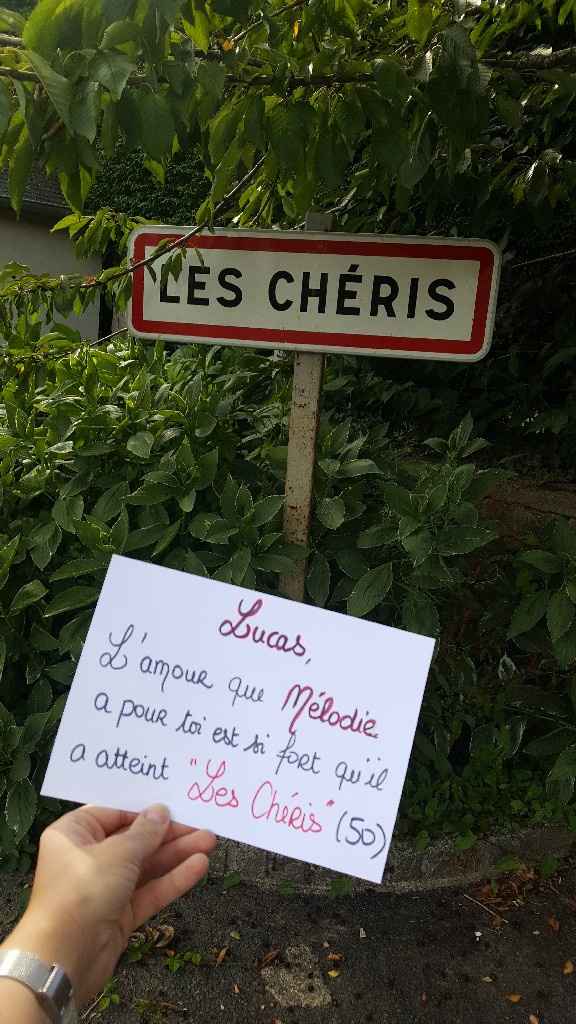 LES CHÉRIS
Lucas,
L'amour que Mélodie
a pour toi est si fort qu'il
a atteint "Les Chéris" (50)